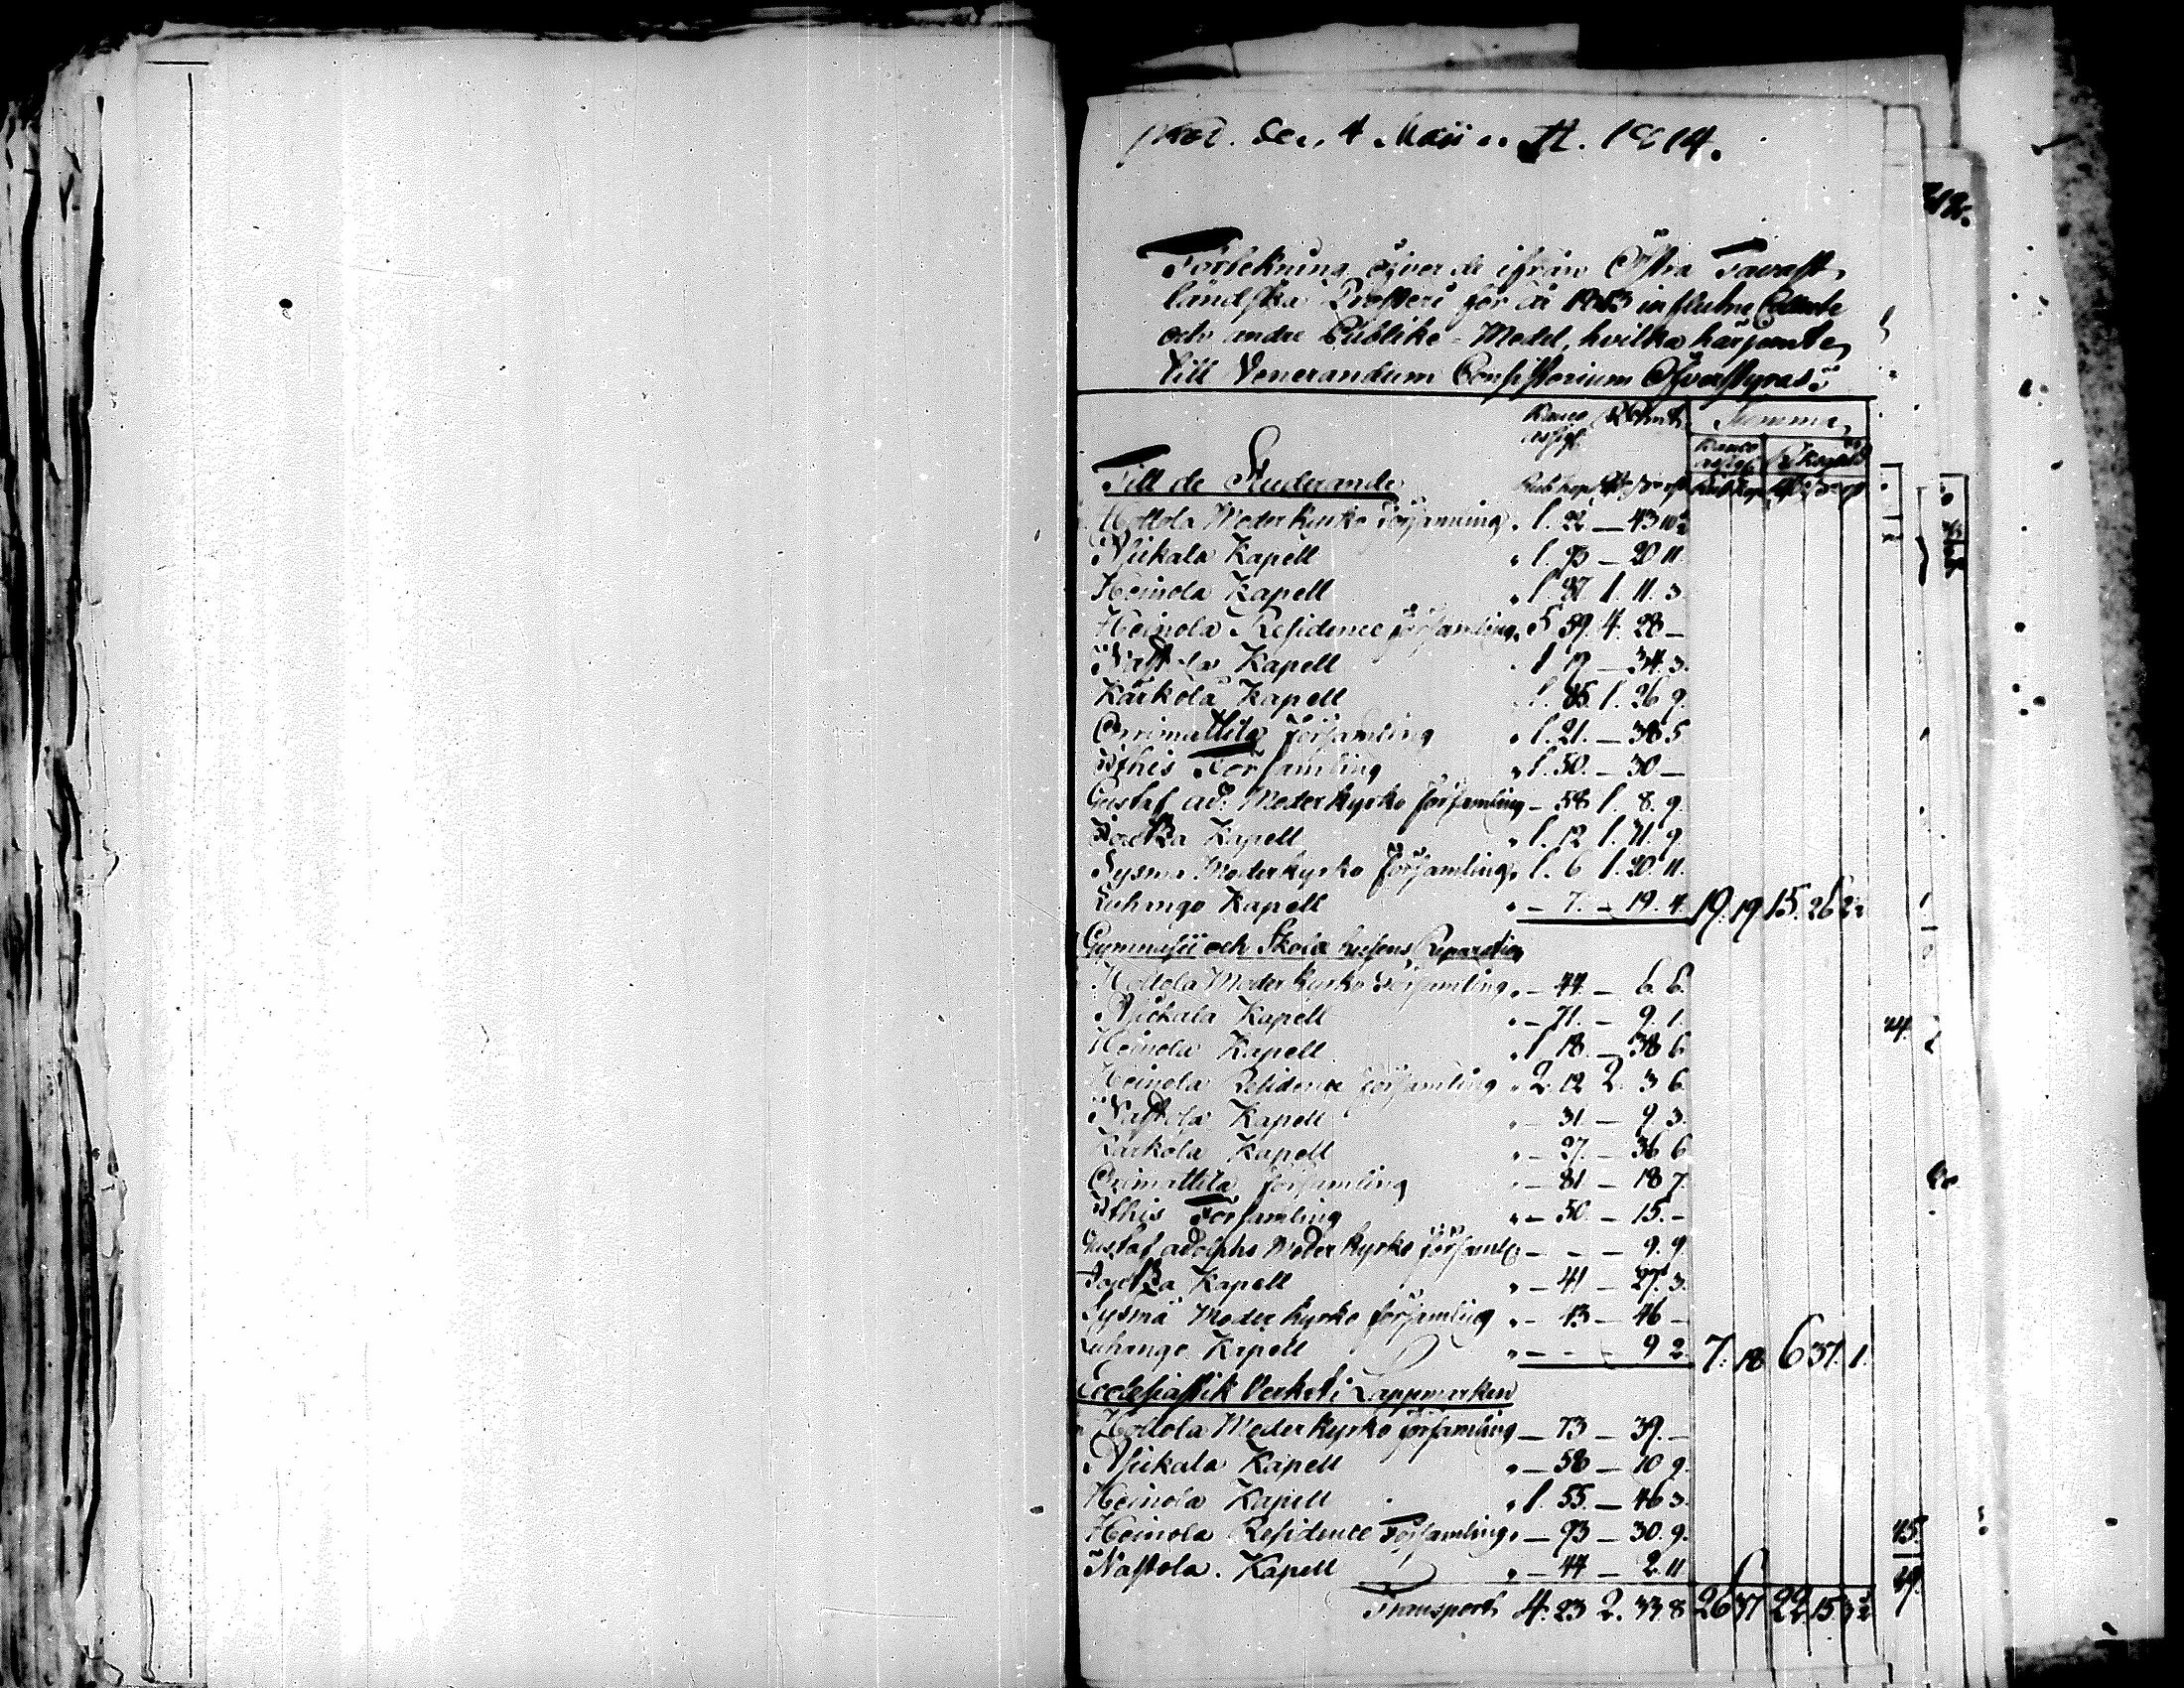 den 4 Maii 1814.
Förtekning öfver de ifrån Östra Tavast,
ländska Prosteri för år 1813 influtne Collecte
och andre Publike Medel, hvilka härjemte
till Venerandum Consistorium Öfverstyras:
Banco assign. Summa
Till de Studerande
Hollola Moderkyrko Församling, 1. 22 — 43 10½
Asikala Kapell " 1. 93 — 20 11.
Heinola Kapell " 1. 37 1. 11. 3
Heinola Residence församling, 5 59. 4. 28 —
Nastola Kapell 1 19 — 34. 3.
Kärkola Kapell 1. 85. 1. 26 9.
Orrimattila församling " 1. 21. — 38 5
Ithis Församling " 1. 50. — 30 —
Gustaf ad: Moderkyrko församling — 58 1. 8. 9.
Joutza Kapell " 1. 12 1. 71. 9.
Sysmä Moderkyrko församling, 1. 6 1. 20. 11.
Luhango Kapell " — 7. — 19. 4. 19. 19 15. 26 2½
Gymnasii och Skola husens Reparation
Hollola Moderkyrko Församling, — 44. — 6. 6.
Asickala Kapell " — 71. — 9. 1.
Heinola Kapell " 1 18. — 38 6
Heinola Residence församling " 2. 12 2. 3 6.
Nastola Kapell " — 31 — 9. 3.
Kärkola Kapell " — 27. — 36 6
Orimattila församling — 81 — 18 7.
Ithis Församling " — 50. — 15. —
Gustaf adolphs Moder Kyrko församl: — - — 9. 9.
Joutza Kapell " — 41 — 27. 3.
Sysmä Moder kyrko församling " — 13 — 46 —
Luhango Kapell " — - — 9 2. 7. 18 6 37. 1.
Ecclesiastik Verket i Lappmarken
Hollola Moder kyrko församling — 73 — 39. —
Asikala Kapell " — 58 — 10 9.
Heinola Kapell " 1. 55. — 46 3.
Heinola Residence Församling, — 93 — 30. 9.
Nastola. Kapell " — 44 — 2. 11
Transport 4. 23 2. 33 8 26 37 22 15 3½